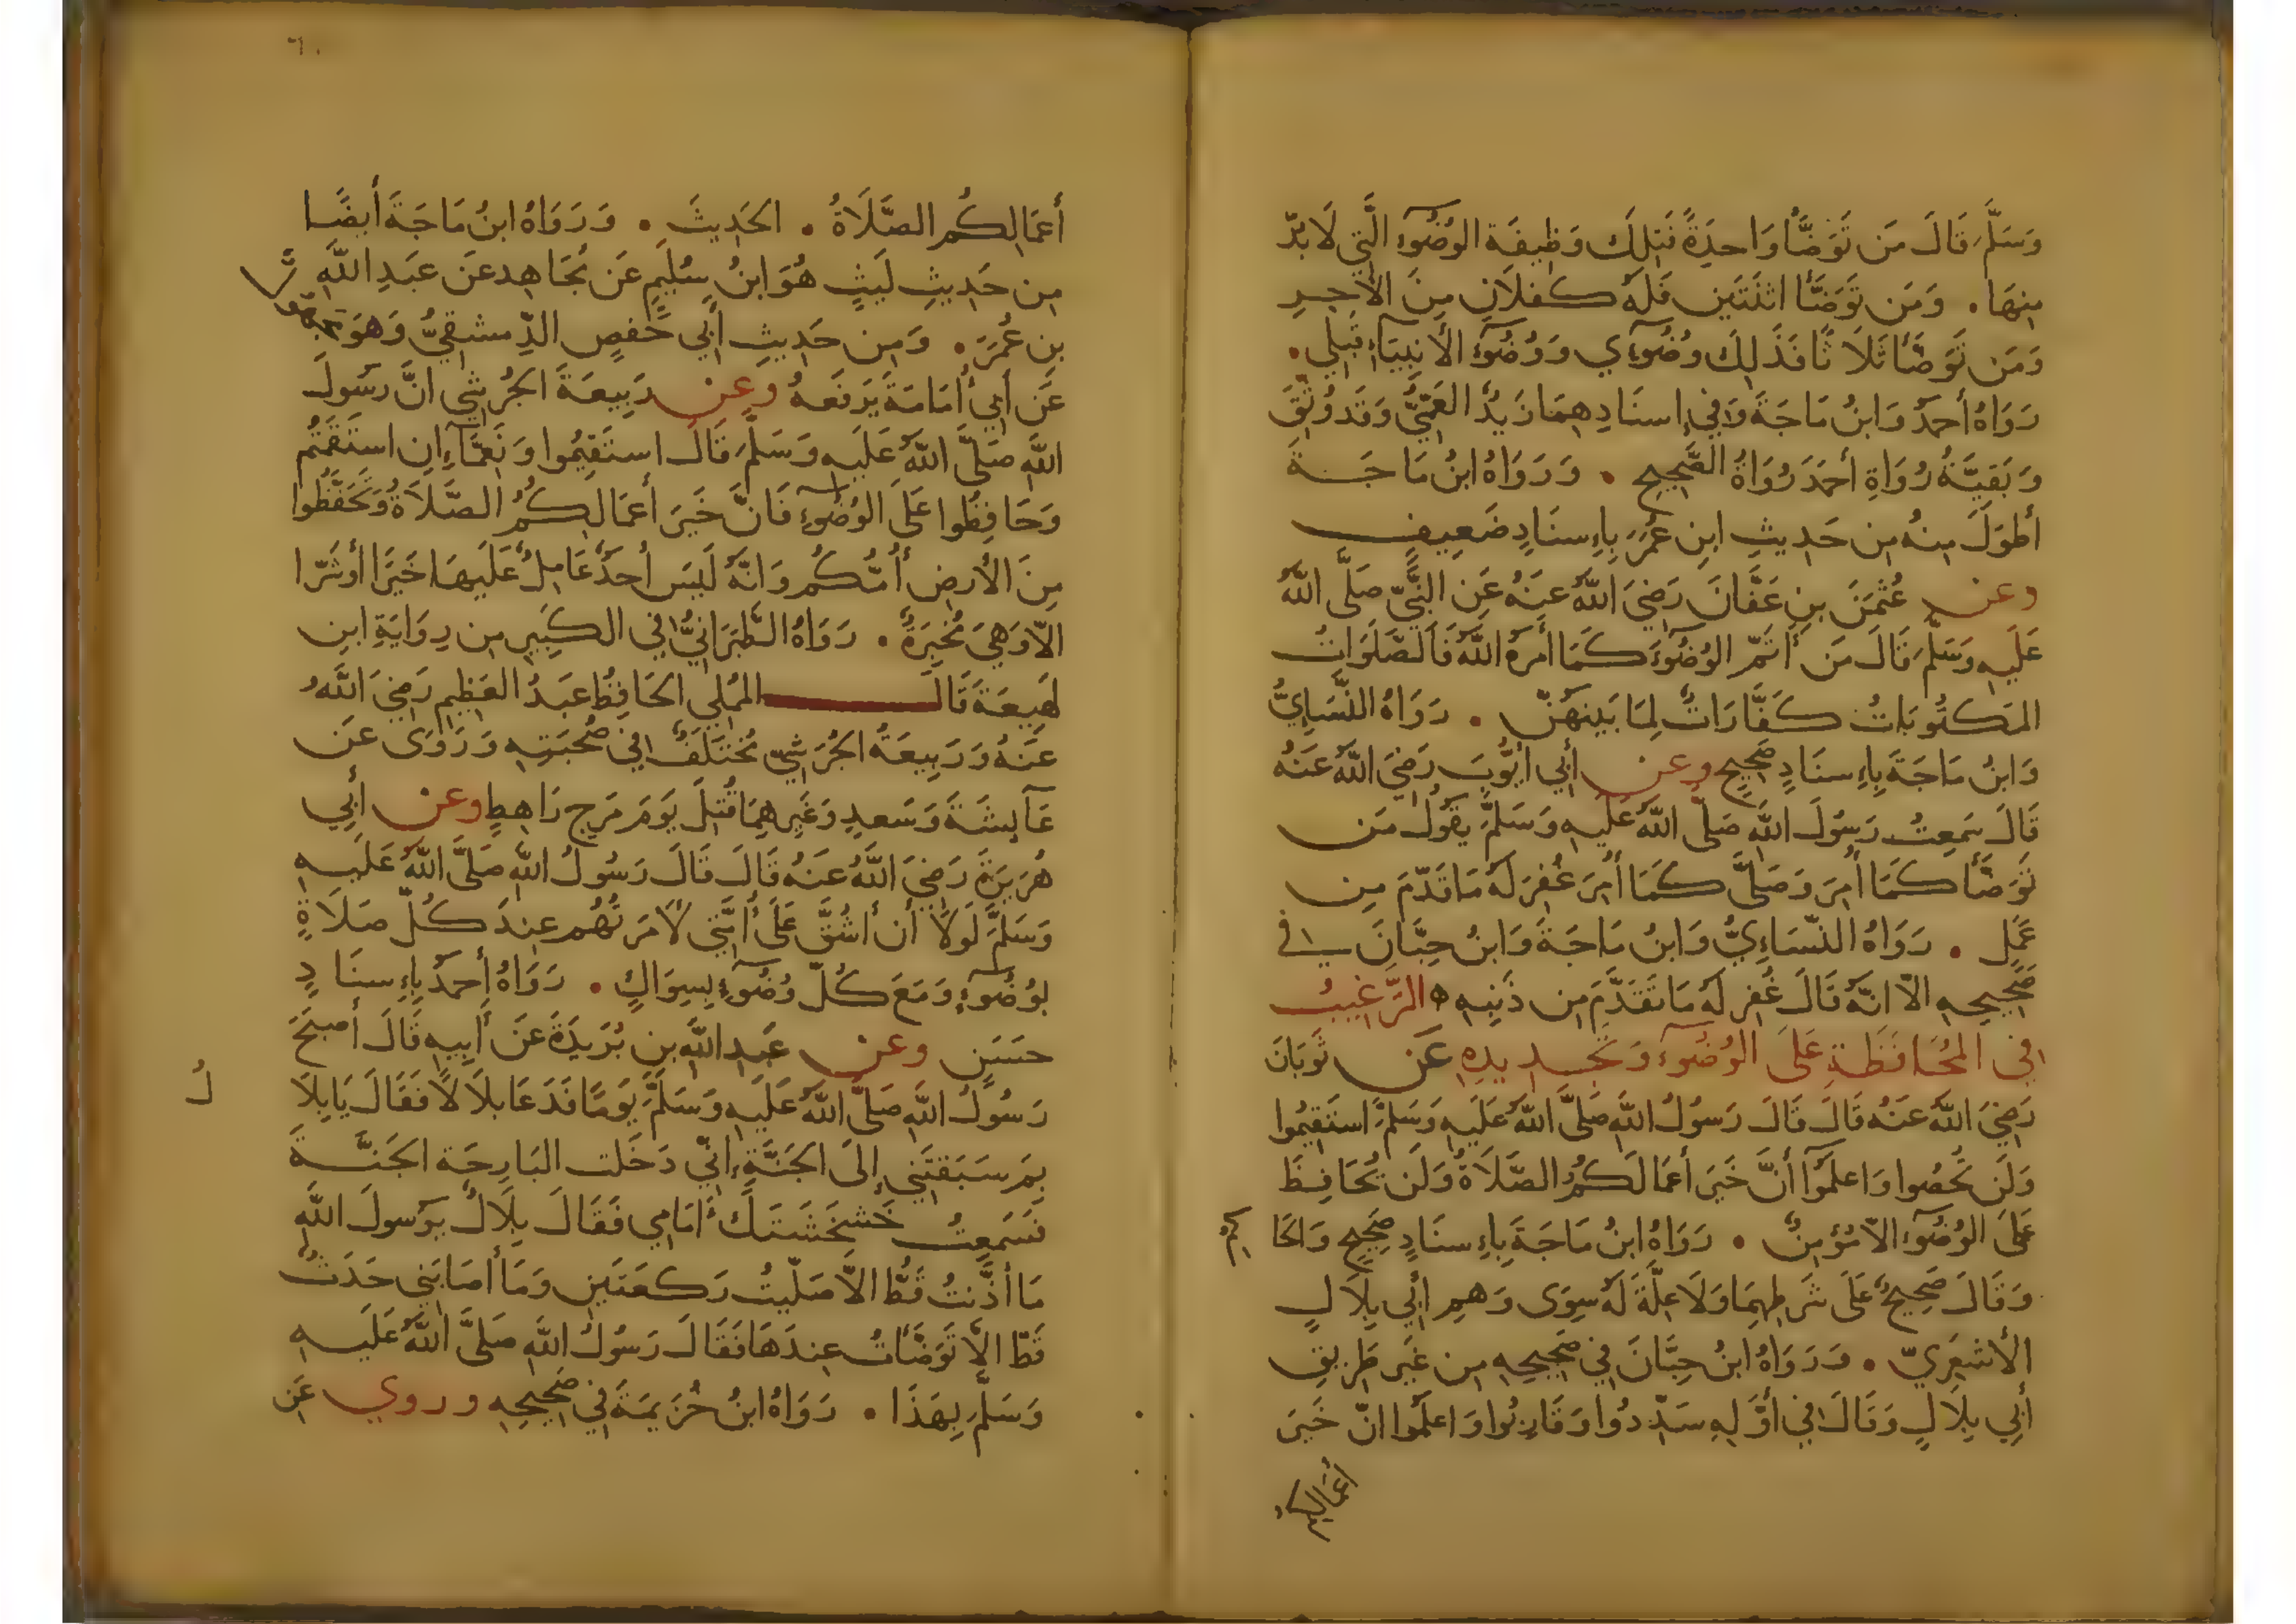 وَسَلَّمَ قَالَ مَن تَوَضَّأَ وَاحِدَةً فَتِلكَ وَظِيفَة الوُضُوءِ الَّتِي لَا بدّ
مِنهَا . وَمَن تَوَضَّأَ اثنَتَين فَلَهُ كفلَانِ مِنَ الأَجرِ
وَمَن تَوَضَّأَ ثَلَاثًا فَذَلِكَ وُضُوءِي وَوُضُوءُ الأَنبِيَاءِ قَبلِي .
رَوَاهُ أَحمَدُ وَابنُ مَاجَةَ وَفِي إِسنَادِهِمَا زَيدٌ العَمِّيُّ وَقَد وُثِّقَ
وَبَقِيَّةُ رُوَاةِ أَحمَدَ رُوَاةُ الصَّحِيحِ . وَرَوَاهُ ابنُ مَاجَةَ
أَطوَلَ مِنهُ مِن حَدِيثِ ابنِ عُمَرَ بِإِسنَادٍ ضَعِيفٍ
وعن عُثمَنَ بنِ عَفَّانَ رَضِيَ اللَّهُ عَنهُ عَنِ النَّبِيّ صَلَّى اللَّهُ
عَلَيهِ وَسَلَّمَ قَالَ مَن أَتَمّ الوُضُوءَ كَمَا أَمَرَهُ اللَّهُ فَالصَّلَوَاتُ
المَكتُوبَاتُ كَفَّارَاتٌ لِمَا بَينَهُنّ . رَوَاهُ النَّسَايِيُّ
وَابنُ مَاجَةَ بِإِسنَادٍ صَحِيحٍ وعن أَبِي أَيُّوبَ رَضِيَ اللَّهُ عَنهُ
قَالَ سَمِعتُ رَسُولَ اللَّهِ صَلَّى اللَّهُ عَلَيهِ وَسَلَّمَ يَقُولُ مَن
تَوَضَّأَ كَمَا أُمِرَ وَصَلَّى كَمَا أُمِرَ غُفِرَ لَهُ مَا قَدَّمَ مِن
عَمَلٍ . رَوَاهُ النّسَاءِيُّ وَابنُ مَاجَةَ وَابنُ حِبَّانَ فِي
صَحِيحِهِ الّا انَّهُ قَالَ غُفِر لَهُ مَا تَقَدَّمَ مِن ذَنبِهِ ه التَّرغِيبُ
فِي المُحَافَظَةِ عَلَى الوُضُوءِ وَتَجدِيدِهِ عَن ثَوبَانَ
رَضِيَ اللَّهُ عَنهُ قَالَ قَالَ رَسُولُ اللَّهِ صَلَّى اللَّهُ عَلَيهِ وَسَلَّمَ استَقِيمُوا
وَلَن تُحصُوا وَاعلَمُوا أَنَّ خَيرَ أَعمَالَكُمُ الصَّلَاةُ وَلَن يُحَافِظَ
عَلَى الوُضُوءِ الّا مُؤمِنٌ . رَوَاهُ ابنُ مَاجَةَ بِإِسنَادٍ صَحِيحٍ وَالحَاكِمُ
وَقَالَ صَحِيحٌ عَلَى شَرطِهِمَا وَلَا عِلَّةَ لَهُ سِوَى وَهمِ أَبِي بِلَالٍ
الأَشعَرِيّ . وَرَوَاهُ ابنُ حِبَّانَ فِي صَحِيحِهِ مِن غَيرِ طَرِيقِ
أَبِي بِلَالٍ وَقَالَ فِي أَوَّلِهِ سَدّدُوا وَقَارِبُوا وَاعلَمُوا انّ خَيرَ
أَعمَالِكُم
٦٠
أَعمَالِكُم الصَّلَاةُ . الحَدِيثَ . وَرَوَاهُ ابنُ مَاجَةَ أَيضًا
مِن حَدِيثِ لَيثٍ هُوَ ابنُ سُلَيمٍ عَن مُجَاهِد عَن عَبدِ اللَّهِ
بنِ عُمَرَ . وَمِن حَدِيثِ أَبِي حَفصٍ الدِّمشقِيُّ وَهوَ
عَن أَبِي أُمَامَةَ يَرفَعهُ وعن رَبِيعَةَ الجُرشِي انَّ رَسُولَ
اللَّهِ صَلَّى اللَّهُ عَلَيهِ وَسَلَّمَ قَالَ استَقِيمُوا وَنَعِمَّا إِن استَقَمتُم
وَحَافِظُوا عَلَى الوُضُوءِ فَانَّ خَيرَ أَعمَالِكُمُ الصَّلَاةُ وَتَحَفَّظُوا
مِنَ الأَرضِ أُمّكُم وَانَّهُ لَيسَ أَحدٌ عَامِلٌ عَلَيهَا خَيرًا أَو شَرّا
الّا وَهِيَ مُخبِرَةٌ . رَوَاهُ الطَّبَرَانِيُّ فِي الكَبِيرِ مِن رِوَايَةِ ابنِ
لَهِيعَةَ قَالَ المُملِي الحَافِظُ عَبدُ العَظِيمِ رَضِيَ اللَّهُ
عَنهُ وَرَبِيعَةُ الجُرَشِيّ مُختَلَفٌ فِي صُحبَتِهِ وَرَوَى عَن
عَايشَةَ وَسَعدٍ وَغَيرِهِمَا قُتِلَ يَومَ مَرجِ رَاهِطٍ وعن أَبِي
هُرَيرَةَ رَضِيَ اللَّهُ عَنهُ قَالَ قَالَ رَسُولُ اللَّهِ صَلَّى اللَّهُ عَلَيهِ
وَسَلَّمَ لَولَا أَن أَشُقَّ عَلَى أُمَّتِي لَأَمَرتُهُم عِندَ كُلّ صَلَاةٍ
بوُضُوءٍ وَمَعَ كُلّ وُضُوءٍ بِسِوَاكٍ . رَوَاهُ أَحمَدُ بِإِسنَادٍ
حسَنٍ وعن عَبدِ اللَّهِ بنِ بُرَيدَةَ عَن أَبِيهِ قَالَ أَصبَحَ
رَسُولُ اللَّهِ صَلَّى اللَّهُ عَلَيهِ وَسَلَّمَ يَومًا فَدَعَا بِلَالًا فَقَالَ يَا بِلَا
لُ
بِمَ سَبَقتَنِي إِلَى الجَنَّةِ انّي دَخَلت البَارِحَة الجَنَّةَ
فَسَمِعتُ خَشخَشَتَكَ أَمَامِي فَقَالَ بِلَالٌ يرَسُولَ اللَّهِ
مَا أَذَّنتُ قَطّ الّا صَلّيتُ رَكعَتَينِ وَمَا أَصَابَنِي حَدَثٌ
قَطّ الّا تَوَضَّأتُ عِندَهَا فَقَالَ رَسُولُ اللَّهِ صَلَّى اللَّهُ عَلَيهِ
وَسَلَّمَ بِهَذَا . رَوَاهُ ابنُ خُزَيمَةَ فِي صَحِيحِهِ وروي عَن